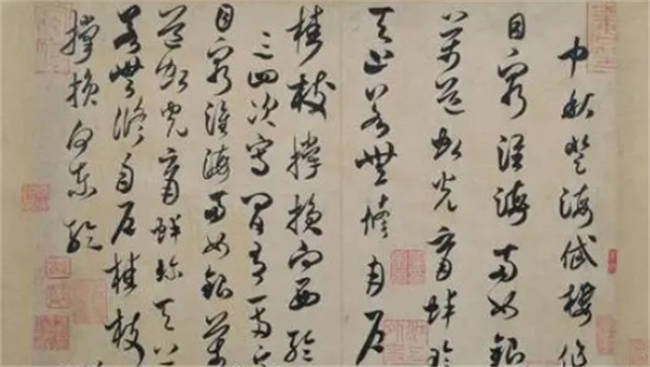 中秋登海岱樓作
目窮淮海兩如銀
萬道虹光育蚌珍
天上若無修月戶
桂枝撐損向西輪
三四次寫間有一兩
目窮淮海兩如銀萬
道虹光育蚌珍天上
若無修月戶桂枝
撐損向東輪